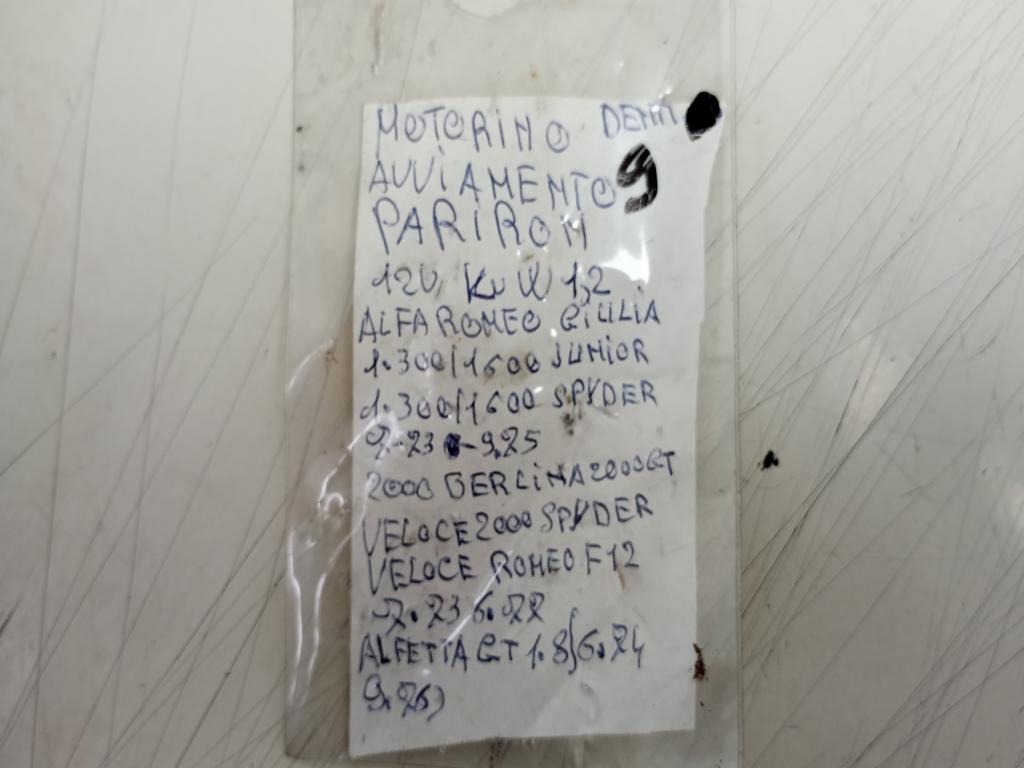 MOTORINO DENTI
9
AVVIAMENTO
PARIROM
12V KW 1,2
ALFA ROMEO GIULIA
1.300/1600 JUNIOR
1.300/1600 SPYDER
7.73 - 9.75
2000 BERLINA 2000 GT
VELOCE 2000 SPYDER
VELOCE ROMEO F12
7.73 6.77
ALFETTA GT 1.8(6.74
9.76)